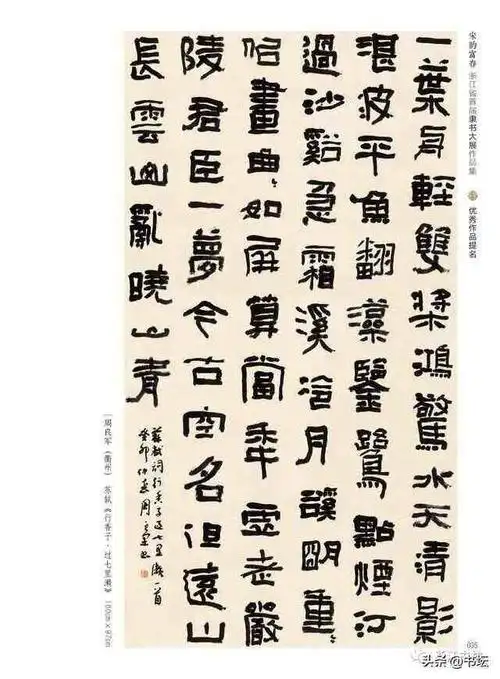 宋韵富春 浙江省首届隶书大展作品集 优秀作品提名
一葉舟輕雙槳鴻驚水天清影
湛波平魚翻藻鑒鷺點煙汀
過沙谿急霜溪冷月谿明重〻
佀畫曲〻如屏算當年虛老嚴
陵君臣一夢今古空名但遠山
長雲山亂曉山青
蘇軾詞行香子過七里瀨一首
癸卯仲春周
周良军（衢州） 苏轼《行香子·过七里濑》 100cm×97cm
036
头条@书坛